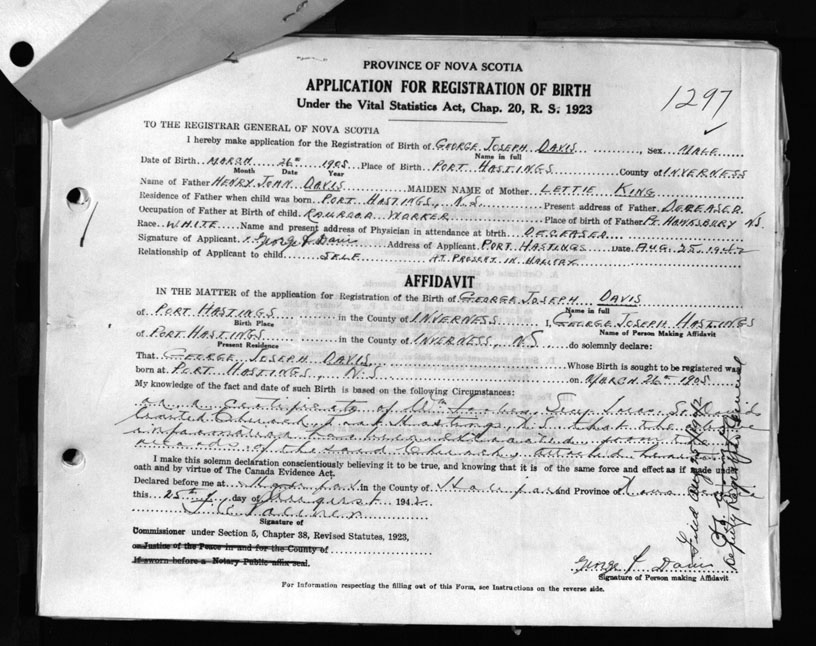 PROVINCE OF NOVA SCOTIA
APPLICATION FOR REGISTRATION OF BIRTH
Under the Vital Statistics Act, Chap. 20, R. S. 1923
1297
TO THE REGISTRAR GENERAL OF NOVA SCOTIA
I hereby make application for the Registration of Birth of GEORGE JOSEPH DAVIS, Sex MALE
Name in full
Date of Birth MARCH 26th 1905 Place of Birth PORT HASTINGS County of INVERNESS
Month Date Year
Name of Father HENRY JOHN DAVIS MAIDEN NAME of Mother LETTIE KING
Residence of Father when child was born PORT HASTINGS, N.S. Present address of Father DECEASED
Occupation of Father at Birth of child RAILROAD WORKER Place of birth of Father PT HAWKESBURY NS
Race WHITE Name and present address of Physician in attendance at birth DECEASED
Signature of Applicant George J Davis Address of Applicant PORT HASTINGS Date AUG. 25 1942
Relationship of Applicant to child SELF AT PRESENT IN HALIFAX
AFFIDAVIT
IN THE MATTER of the application for Registration of the Birth of GEORGE JOSEPH DAVIS
Name in full
of PORT HASTINGS in the County of INVERNESS I, GEORGE JOSEPH HASTINGS
Birth Place Name of Person Making Affidavit
of PORT HASTINGS in the County of INVERNESS, NS do solemnly declare:
Present Residence
That GEORGE JOSEPH DAVIS Whose Birth is sought to be registered was
born at PORT HASTINGS, N.S on MARCH 26th 1905
My knowledge of the fact and date of such Birth is based on the following Circumstances:
Certificate of Wm St. Davids
United Church, Port Hastings, N.S that the above
information was extracted from the
records of the said Church, attached hereto
I make this solemn declaration conscientiously believing it to be true, and knowing that it is of the same force and effect as if made under
oath and by virtue of The Canada Evidence Act.
Declared before me at Halifax in the County of Halifax and Province of Nova
this 25th day of August 1942
Signature of
Commissioner under Section 5, Chapter 38, Revised Statutes, 1923,
or Justice of the Peace in and for the County of
If sworn before a Notary Public affix seal.
George J Davis
Signature of Person making Affidavit
For Information respecting the filling out of this Form, see Instructions on the reverse side.
Filed Aug 25/1942
Deputy Registrar General